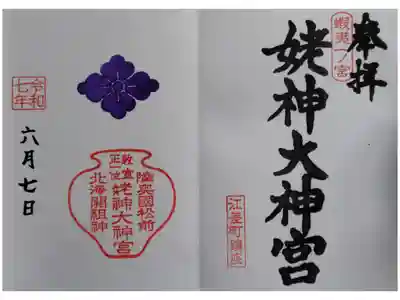 奉拝
蝦夷一ノ宮
姥神大神宮
江差町鎮座
令和
七年
六月七日
陸奥國松前
敕宣
正一位
姥神大神宮
北海開祖神